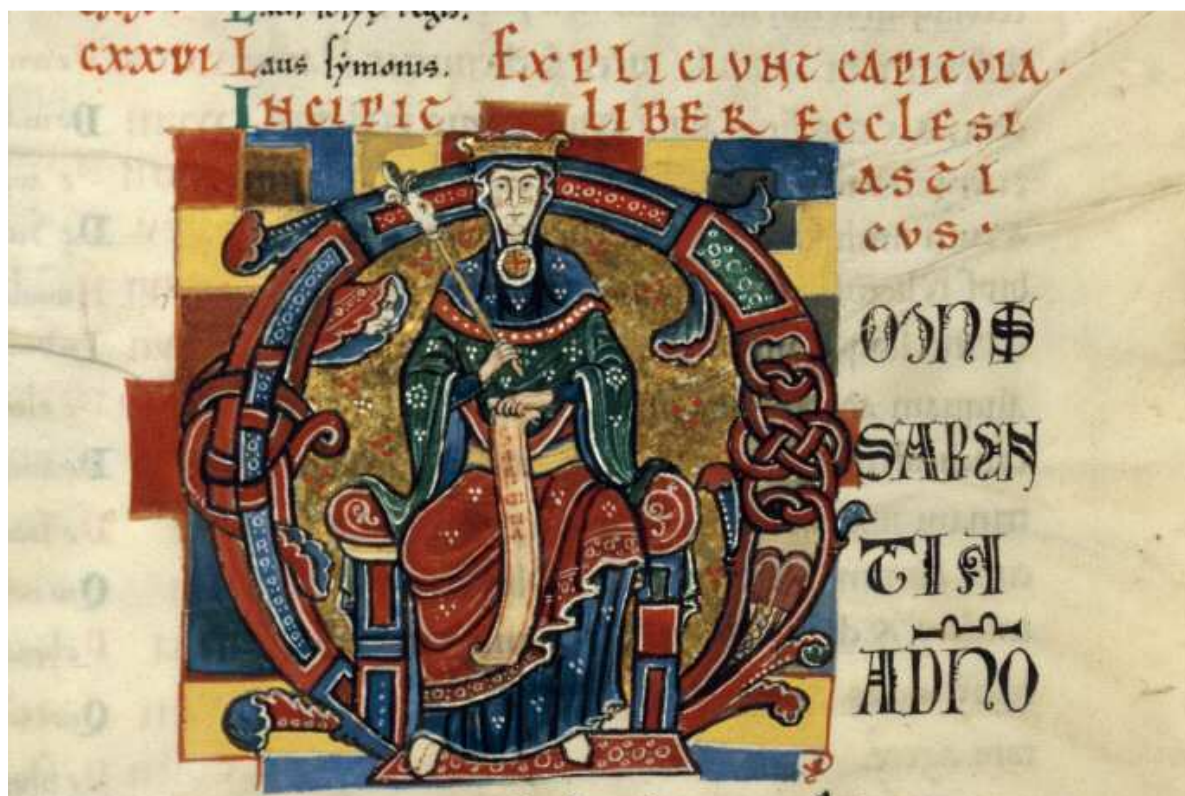 CXXVI Laus symonis. EXPLICIUNT CAPITULA.
INCIPIT LIBER ECCLESI
ASTI
CUS.
OMNS
SAPIEN
TIA
A DNO